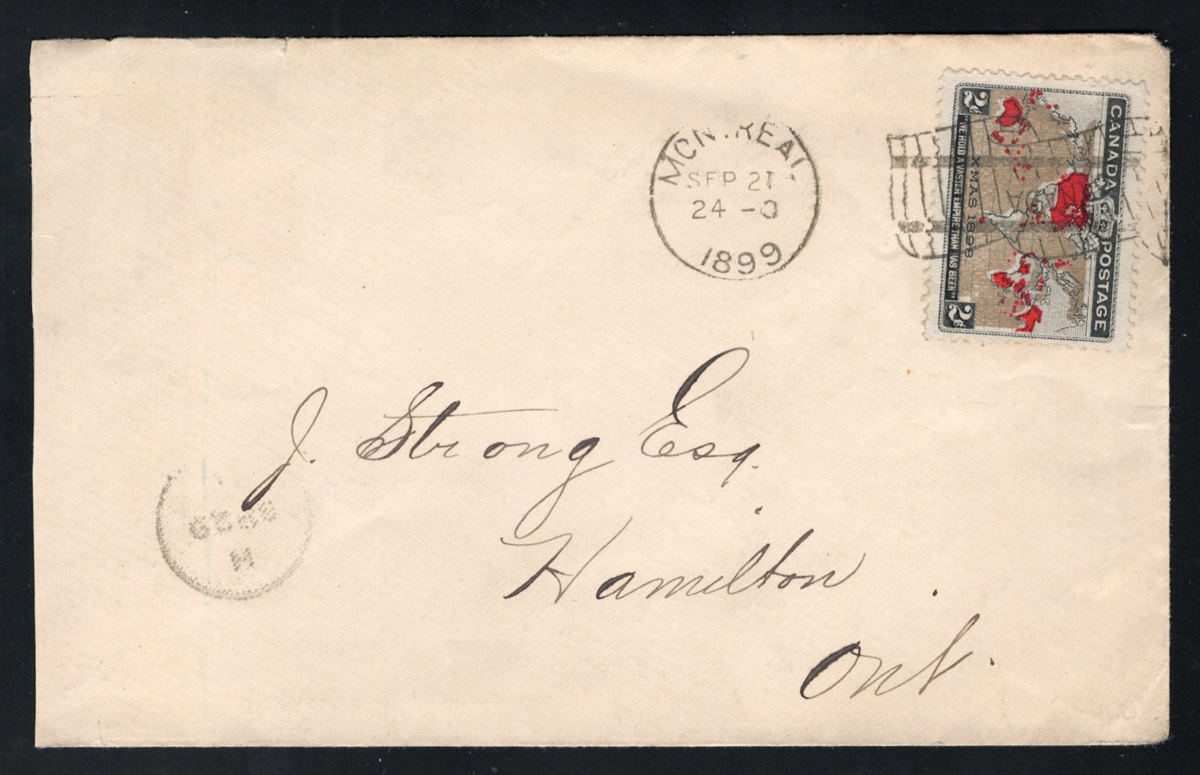 MONTREAL
SEP 21
24 - 0
1899
CANADA POSTAGE
XMAS 1898
"WE HOLD A VASTER EMPIRE THAN HAS BEEN"
2c
2c
J. Strong Esq.
Hamilton
Ont.
M